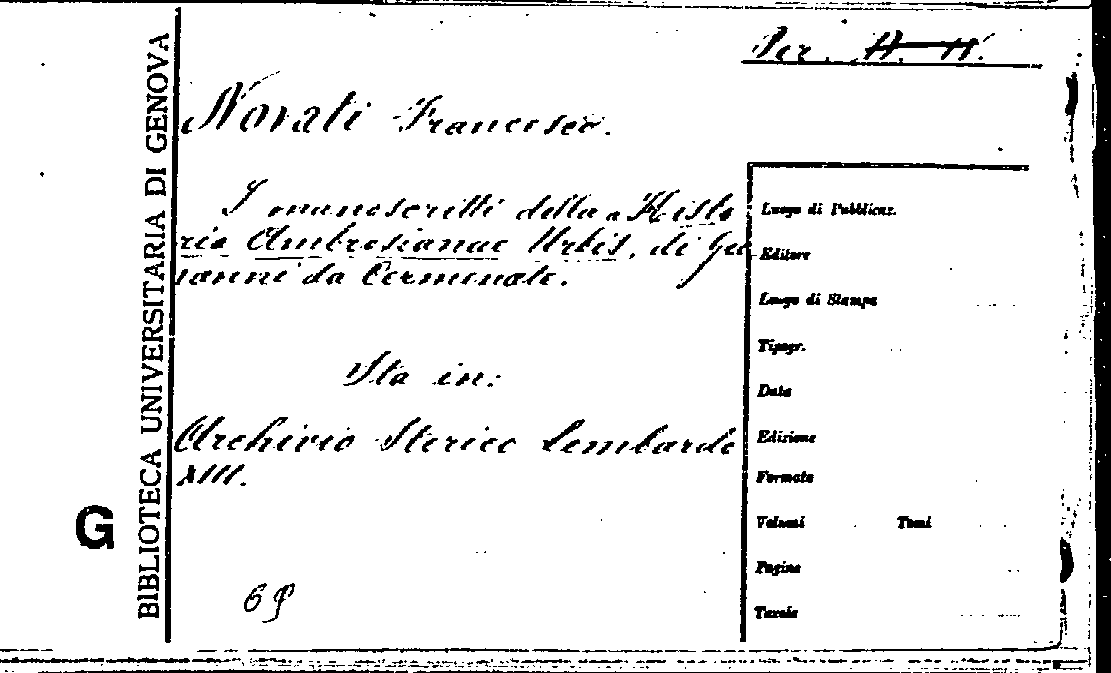 Per. H. 11.
BIBLIOTECA UNIVERSITARIA DI GENOVA
G
Novati Francesco.
I manoscritti della Histo
ria Ambrosianae Urbis, di Gio
vanni da Cermenate.
Sta in:
Archivio Storico Lombardo
XIII.
Luogo di Pubblicaz.
Editore
Luogo di Stampa
Tipogr.
Data
Edizione
Formato
Volumi Tomi
Pagine
Tavole